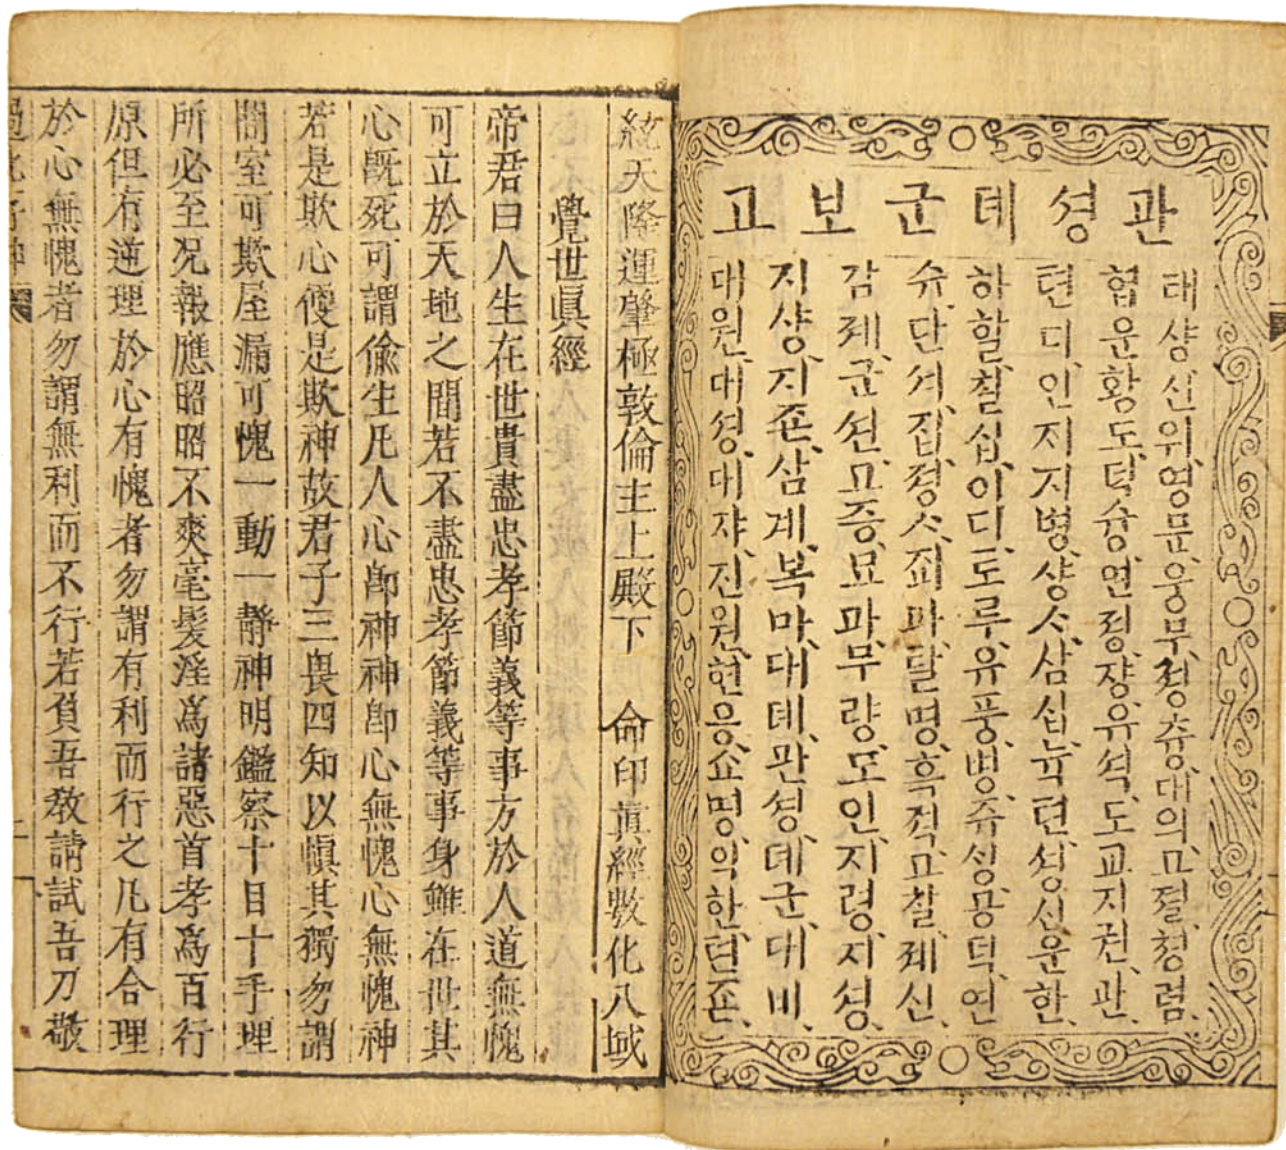 관셩뎨군보고
태샹신위、영문웅무、졍츙대의、고졀쳥렴、
협운황도、덕슝연졍、쟝유셕도교지권、관、
텬디인지지병、샹ᄉ삼십뉵텬、셩신운한、
하할칠십이디、도루유풍병、쥬싱공덕、연
슈단셔、집졍ᄉ죄과、달명흑젹、고찰졔신、
감졔군션、고증묘과、무량도인、지령지셩、
지샹지죤、삼계복마、대뎨관셩뎨군、대비、
대원、대셩、대쟈、진원현응、쇼명익한텬죤、
統天隆運肇極敦倫主上殿下 命印眞經敷化八域
覺世眞經
帝君曰人生在世貴盡忠孝節義等事方於人道無愧
可立於天地之間若不盡忠孝節義等事身雖在世其
心旣死可謂偸生凡人心卽神神卽心無愧心無愧神
若是欺心便是欺神故君子三畏四知以愼其獨勿謂
闇室可欺屋漏可愧一動一靜神明鑑察十目十手理
所必至况報應昭昭不爽毫髮淫爲諸惡首孝爲百行
原但有逆理於心有愧者勿謂有利而行之凡有合理
於心無愧者勿謂無利而不行若負吾敎請試吾刀敬